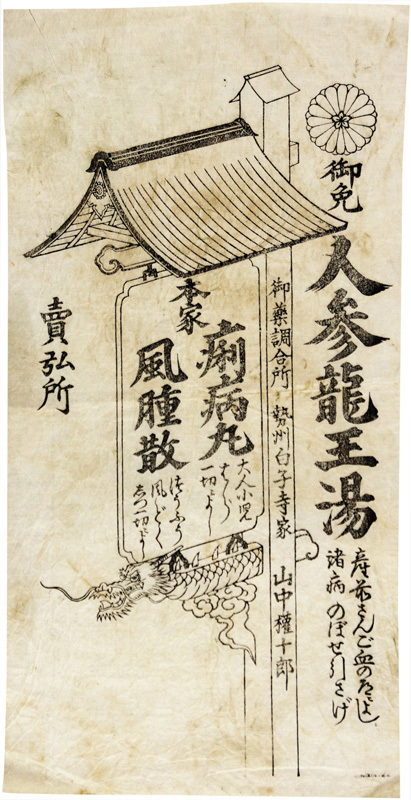 御免
人参龍王湯
産前さんご血のみちによし
諸病のぼせ引さげ
御藥調合所 勢州白子寺家 山中權十郎
本家
痢病丸
大人小児
はら
一切によし
風腫散
風どく
一切によし
賣弘所